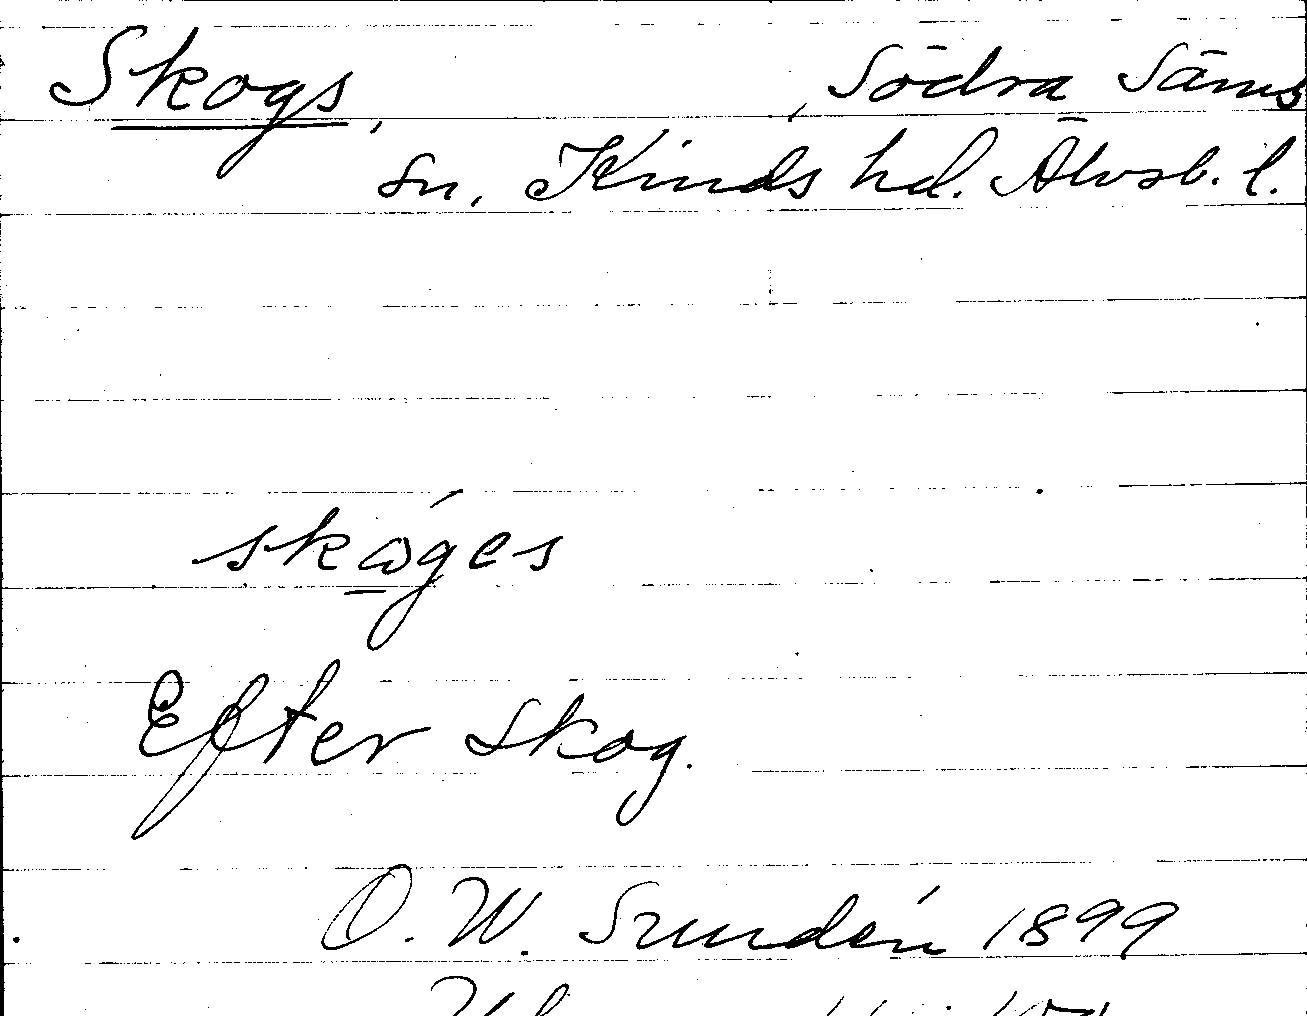 Skogs, Södra Säms
sn. Kinds hd. Älvsb. l.
skǫ́ges
Efter skog.
O. W. Sundén 1899